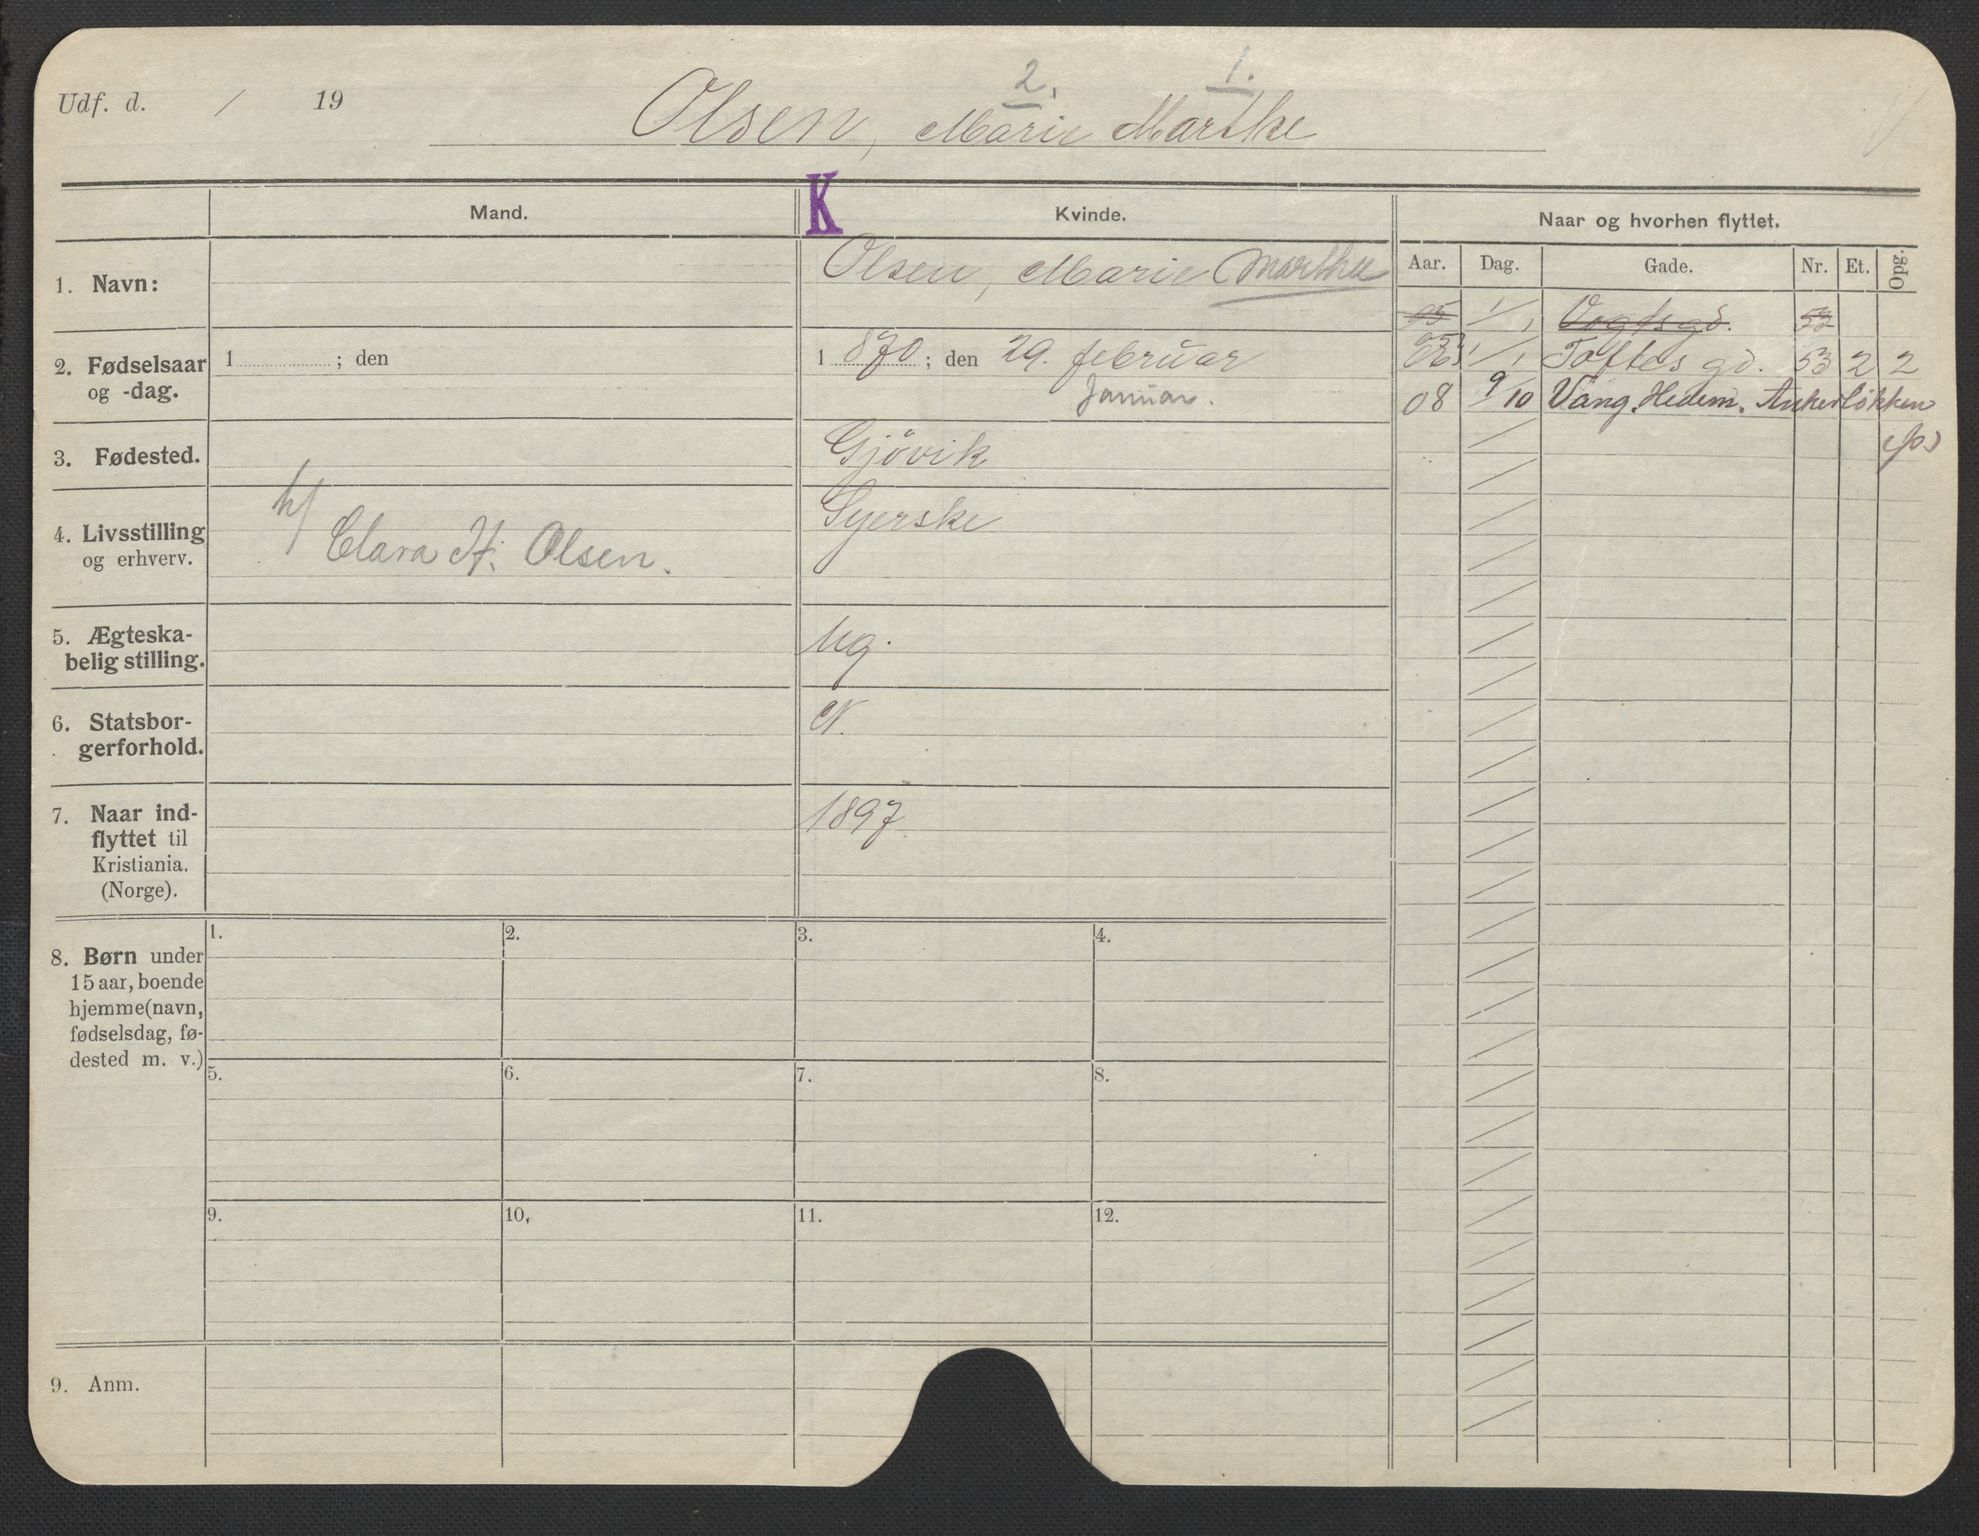 Udf. d. / 19
2. 1.
Olsen, Marie Marthe
Mand.
K
Kvinde.
Naar og hvorhen flyttet.
Aar. Dag. Gade. Nr. Et. Opg.
1. Navn:
Olsen, Marie Marthea
05 1/1 Vogtsgd. 53
1/1 Toftes gd. 53 2 2
08 9/10 Vang. Hedem. Ankerløkken
2. Fødselsaar og -dag.
1 ; den
1 870 ; den 29. februar
Januar.
3. Fødested.
Gjøvik
4. Livsstilling og erhverv.
h/ Clara H. Olsen.
Syerske
5. Ægteska-
belig stilling.
Ug.
6. Statsbor-
gerforhold.
N.
7. Naar ind-
flyttet til
Kristiania.
(Norge).
1897
8. Børn under
15 aar, boende
hjemme(navn,
fødselsdag, fø-
dested m. v.)
1. 2. 3. 4.
5. 6. 7. 8.
9. 10. 11. 12.
9. Anm.